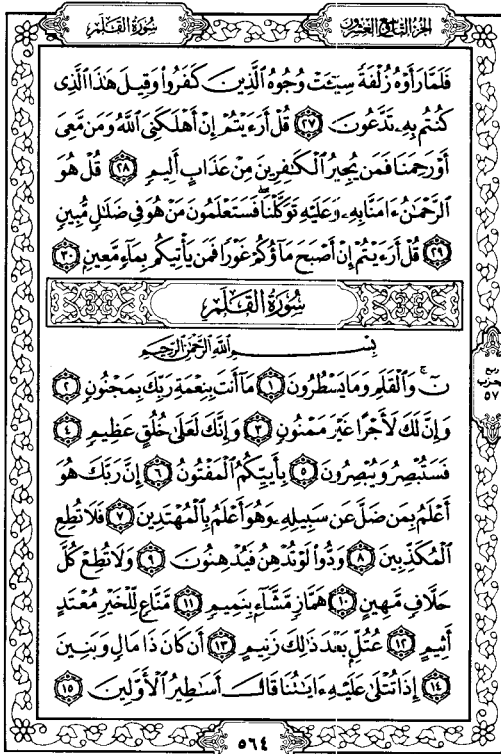 الجزء التاسع والعشرون
سورة القلم
فَلَمَّا رَأَوْهُ زُلْفَةً سِيٓـَٔتْ وُجُوهُ ٱلَّذِينَ كَفَرُوا۟ وَقِيلَ هَٰذَا ٱلَّذِى
كُنتُم بِهِۦ تَدَّعُونَ ٢٧ قُلْ أَرَءَيْتُمْ إِنْ أَهْلَكَنِىَ ٱللَّهُ وَمَن مَّعِىَ
أَوْ رَحِمَنَا فَمَن يُجِيرُ ٱلْكَٰفِرِينَ مِنْ عَذَابٍ أَلِيمٍ ٢٨ قُلْ هُوَ
ٱلرَّحْمَٰنُ ءَامَنَّا بِهِۦ وَعَلَيْهِ تَوَكَّلْنَا ۖ فَسَتَعْلَمُونَ مَنْ هُوَ فِى ضَلَٰلٍ مُّبِينٍ
٢٩ قُلْ أَرَءَيْتُمْ إِنْ أَصْبَحَ مَآؤُكُمْ غَوْرًا فَمَن يَأْتِيكُم بِمَآءٍ مَّعِينٍۭ ٣٠
سُورَةُ القَلَمِ
بِسْمِ ٱللَّهِ ٱلرَّحْمَٰنِ ٱلرَّحِيمِ
نٓ ۚ وَٱلْقَلَمِ وَمَا يَسْطُرُونَ ١ مَآ أَنتَ بِنِعْمَةِ رَبِّكَ بِمَجْنُونٍ ٢
وَإِنَّ لَكَ لَأَجْرًا غَيْرَ مَمْنُونٍ ٣ وَإِنَّكَ لَعَلَىٰ خُلُقٍ عَظِيمٍ ٤
فَسَتُبْصِرُ وَيُبْصِرُونَ ٥ بِأَييِّكُمُ ٱلْمَفْتُونُ ٦ إِنَّ رَبَّكَ هُوَ
أَعْلَمُ بِمَن ضَلَّ عَن سَبِيلِهِۦ وَهُوَ أَعْلَمُ بِٱلْمُهْتَدِينَ ٧ فَلَا تُطِعِ
ٱلْمُكَذِّبِينَ ٨ وَدُّوا۟ لَوْ تُدْهِنُ فَيُدْهِنُونَ ٩ وَلَا تُطِعْ كُلَّ
حَلَّافٍ مَّهِينٍ ١٠ هَمَّازٍ مَّشَّآءٍۭ بِنَمِيمٍ ١١ مَّنَّاعٍ لِّلْخَيْرِ مُعْتَدٍ
أَثِيمٍ ١٢ عُتُلٍّۭ بَعْدَ ذَٰلِكَ زَنِيمٍ ١٣ أَن كَانَ ذَا مَالٍ وَبَنِينَ
١٤ إِذَا تُتْلَىٰ عَلَيْهِ ءَايَٰتُنَا قَالَ أَسَٰطِيرُ ٱلْأَوَّلِينَ ١٥
ربع
حزب
٥٧
٥٦٤